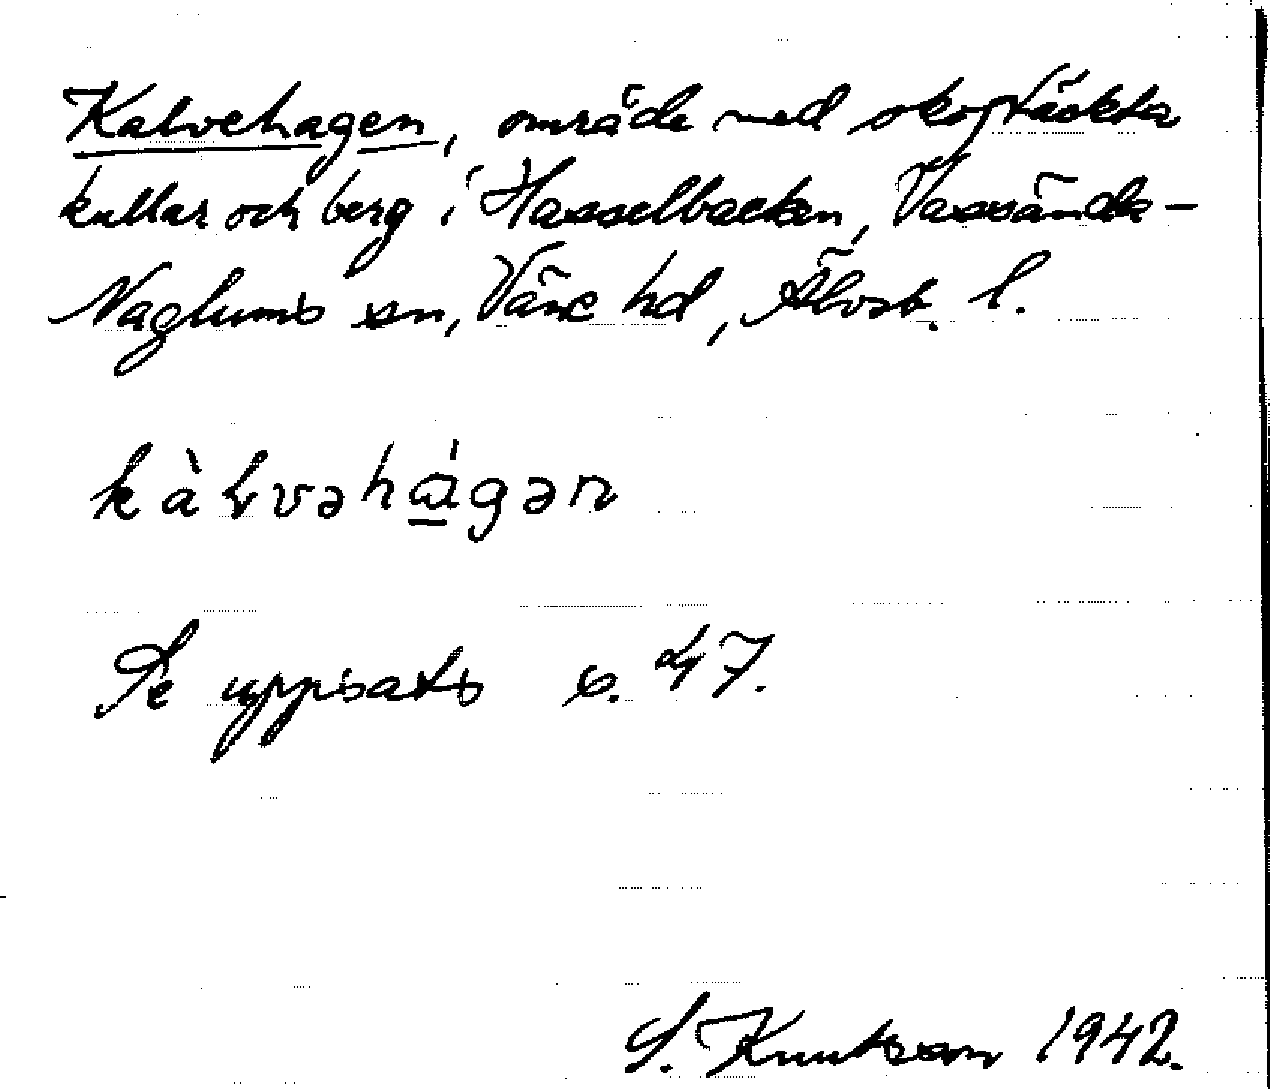 Kalvehagen, område med skogtäckta
kullar och berg i Hasselbacken, Vassända-
Naglums sn, Väne hd, Älvsb. l.
kàɫvəhɑ̲́gən
Se uppsats s. 47.
S. Knutsson 1942.